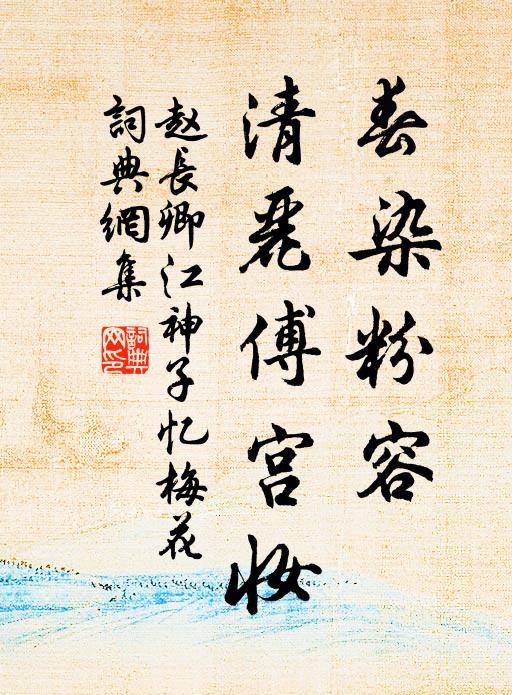 春染粉容
清麗傅宫妝
赵長卿江神子忆梅花
詞典網集
詞典網印